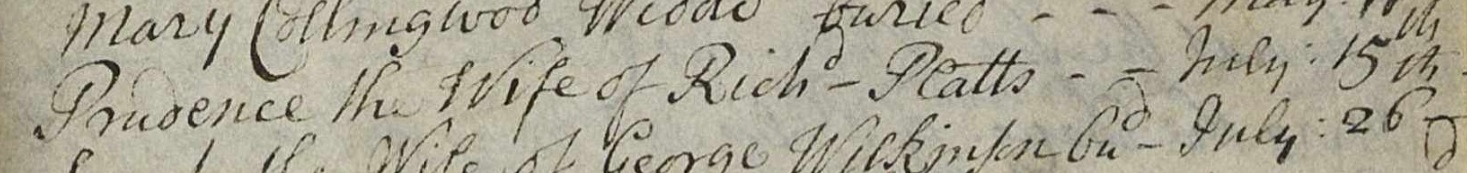 Mary Collingwod Widdo buried - - - May:
Prudence the Wife of Richd - Platts - - July: 15th -
the Wife of George Wilkinson bud - July: 26th